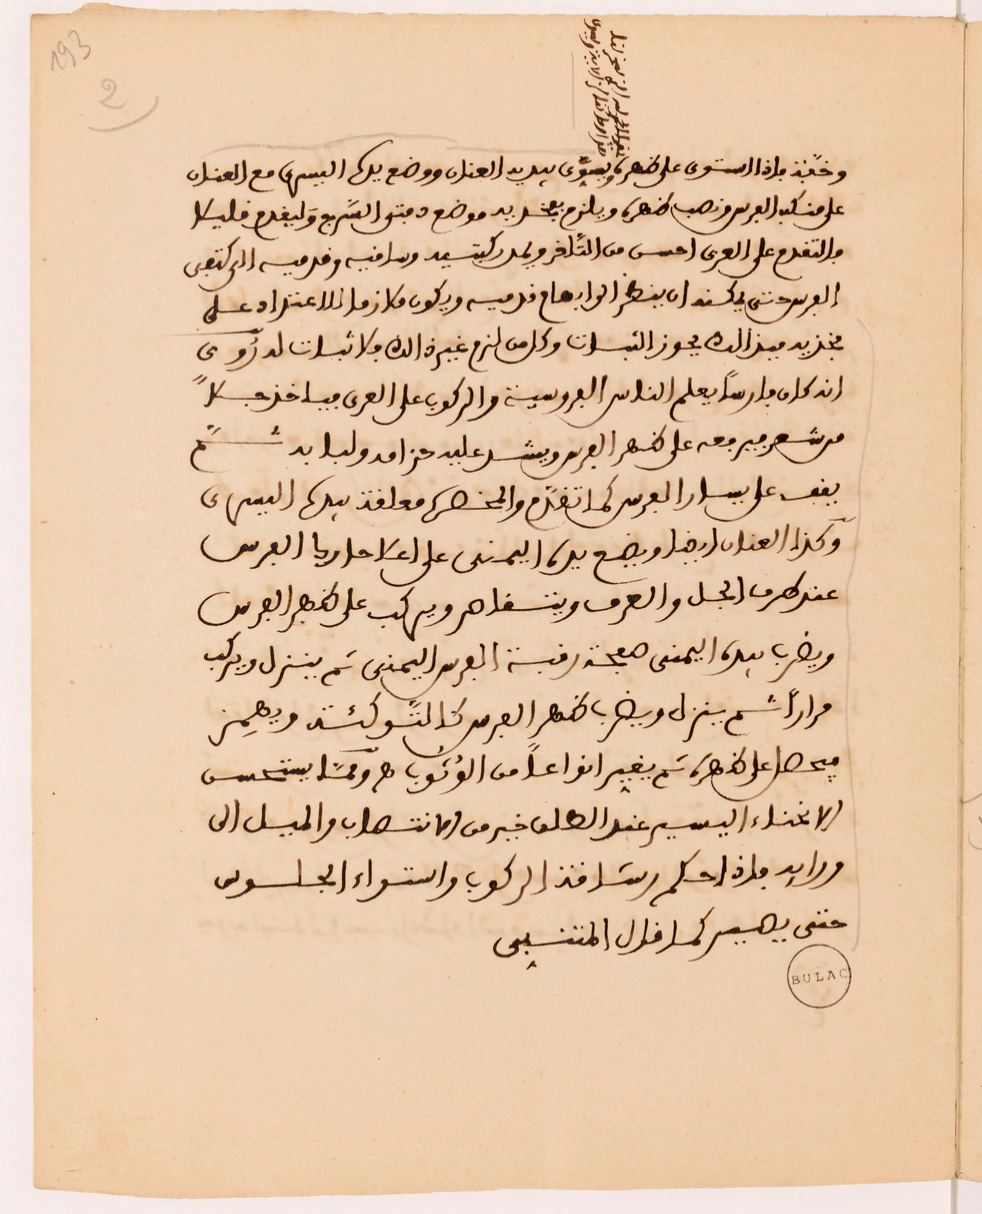 193
2
وخفة فإذا استوى على ظهره ويسوّى بيديه العنان ووضع يده اليسرى مع العنان
على منكب الفرس ونصب ظهره ويلزم بفخذيه موضع دفتي السرج وليتقدم قليلا
فالتقدم على العري احسن من التأخر ويمد ركبتيه وساقيه وقدميه الى كتفي
الفرس حتى يمكنه ان ينظر الى ابهام قدميه ويكون ملازما للاعتماد على
فخذيه فبذالك يحوز الثبات وكل من لزم غير ذالك فلا ثبات له رُوي
انه كان فارساً يعلم الناس الفروسية والركوب على العرى فياخذ جلاً
من شعر فيرفعه على ظهر الفرس ويشد عليه حزامه ولبابه ثم
يقف على يسار الفرس كما تقدّم والمخصره معلقة بيده اليسرى
وكذا العنان ايضا ويضع يده اليمنى على اعلا حارك الفرس
عند طرف الجل والعرف ويتسفاهر ويركب على ظهر الفرس
ويضرب بيده اليمنى صفحة رقبة الفرس اليمنى ثم ينزل ويركب
مراراً ثم ينزل ويضرب ظهر الفرس كالمتوكئة ويهمز
فيحصل على ظهره ثم يغير انواعاً من الوُثوب هـ ومما يستحسن
الانحناء اليسير عند الطلق خير من الانتصاب والميل الى
ورايه فاذا احكم رشاقة الركوب واستواء الجلوس
حتى يصير كما قال المتنبي
BULAC